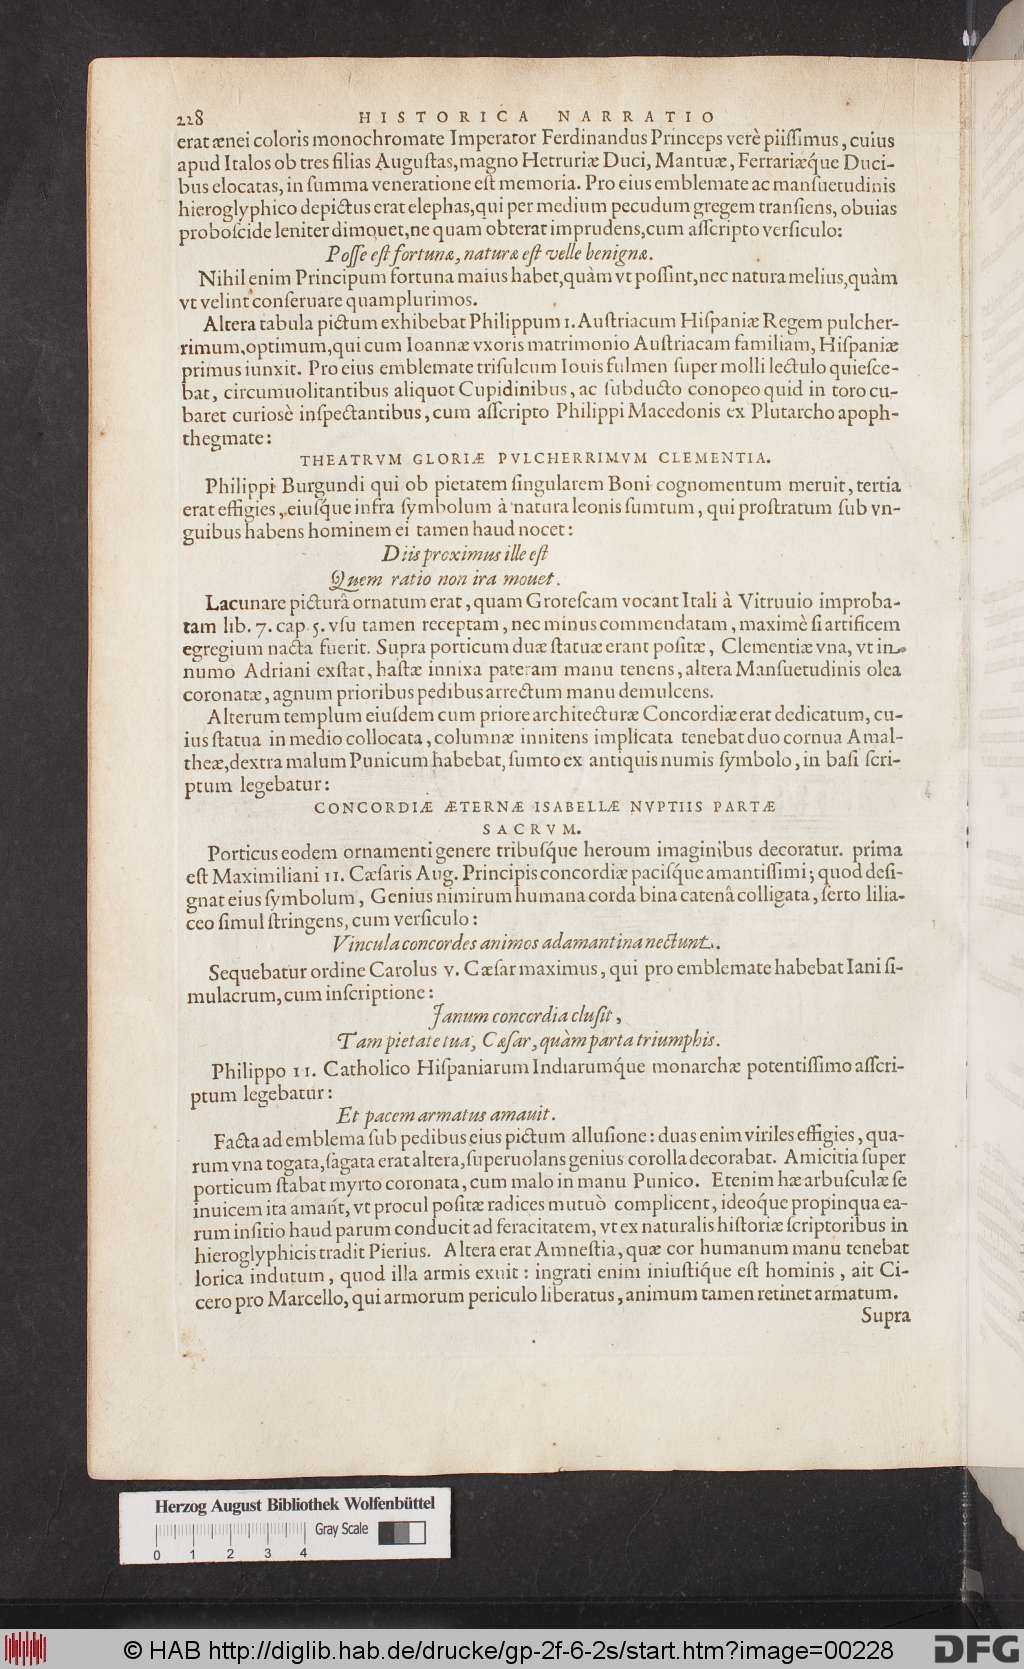 228 HISTORICA NARRATIO
erat ænei coloris monochromate Imperator Ferdinandus Princeps verè piiſſimus, cuius
apud Italos ob tres filias Auguſtas, magno Hetruriæ Duci, Mantuæ, Ferrariæq́ue Duci-
bus elocatas, in ſumma veneratione eſt memoria. Pro eius emblemate ac manſuetudinis
hieroglyphico depictus erat elephas, qui per medium pecudum gregem tranſiens, obuias
proboſcide leniter dimouet, ne quam obterat imprudens, cum aſſcripto verſiculo:
Poſſe eſt fortunæ, naturæ eſt velle benignæ.
Nihil enim Principum fortuna maius habet, quàm vt poſſint, nec natura melius, quàm
vt velint conſeruare quamplurimos.
Altera tabula pictum exhibebat Philippum I. Auſtriacum Hiſpaniæ Regem pulcher-
rimum, optimum, qui cum Ioannæ vxoris matrimonio Auſtriacam familiam, Hiſpaniæ
primus iunxit. Pro eius emblemate triſulcum Iouis fulmen ſuper molli lectulo quieſce-
bat, circumuolitantibus aliquot Cupidinibus, ac ſubducto conopeo quid in toro cu-
baret curiosè inſpectantibus, cum aſſcripto Philippi Macedonis ex Plutarcho apoph-
thegmate:
THEATRVM GLORIÆ PVLCHERRIMVM CLEMENTIA.
Philippi Burgundi qui ob pietatem ſingularem Boni cognomentum meruit, tertia
erat effigies, eiuſq́ue infra ſymbolum à natura leonis ſumtum, qui proſtratum ſub vn-
guibus habens hominem ei tamen haud nocet:
Diis proximus ille eſt
Quem ratio non ira mouet.
Lacunare picturâ ornatum erat, quam Groteſcam vocant Itali à Vitruuio improba-
tam lib. 7. cap. 5. vſu tamen receptam, nec minus commendatam, maximè ſi artificem
egregium nacta fuerit. Supra porticum duæ ſtatuæ erant poſitæ, Clementiæ vna, vt in
numo Adriani exſtat, haſtæ innixa pateram manu tenens, altera Manſuetudinis olea
coronatæ, agnum prioribus pedibus arrectum manu demulcens.
Alterum templum eiuſdem cum priore architecturæ Concordiæ erat dedicatum, cu-
ius ſtatua in medio collocata, columnæ innitens implicata tenebat duo cornua Amal-
theæ, dextra malum Punicum habebat, ſumto ex antiquis numis ſymbolo, in baſi ſcri-
ptum legebatur:
CONCORDIÆ ÆTERNÆ ISABELLÆ NVPTIIS PARTÆ
SACRVM.
Porticus eodem ornamenti genere tribuſq́ue heroum imaginibus decoratur. prima
eſt Maximiliani II. Cæſaris Aug. Principis concordiæ paciſq́ue amantiſſimi; quod deſi-
gnat eius ſymbolum, Genius nimirum humana corda bina catenâ colligata, ſerto lilia-
ceo ſimul ſtringens, cum verſiculo:
Vincula concordes animos adamantina nectunt.
Sequebatur ordine Carolus V. Cæſar maximus, qui pro emblemate habebat Iani ſi-
mulacrum, cum inſcriptione:
Janum concordia cluſit,
Tam pietate tua, Cæſar, quàm parta triumphis.
Philippo II. Catholico Hiſpaniarum Indiarumq́ue monarchæ potentiſſimo aſſcri-
ptum legebatur:
Et pacem armatus amauit.
Facta ad emblema ſub pedibus eius pictum alluſione: duas enim viriles effigies, qua-
rum vna togata, ſagata erat altera, ſuperuolans genius corolla decorabat. Amicitia ſuper
porticum ſtabat myrto coronata, cum malo in manu Punico. Etenim hæ arbuſculæ ſe
inuicem ita amant, vt procul poſitæ radices mutuò complicent, ideoq́ue propinqua ea-
rum inſitio haud parum conducit ad feracitatem, vt ex naturalis hiſtoriæ ſcriptoribus in
hieroglyphicis tradit Pierius. Altera erat Amneſtia, quæ cor humanum manu tenebat
lorica indutum, quod illa armis exuit: ingrati enim iniuſtiq́ue eſt hominis, ait Ci-
cero pro Marcello, qui armorum periculo liberatus, animum tamen retinet armatum.
Supra
Herzog August Bibliothek Wolfenbüttel
Gray Scale
0 1 2 3 4
© HAB http://diglib.hab.de/drucke/gp-2f-6-2s/start.htm?image=00228
DFG